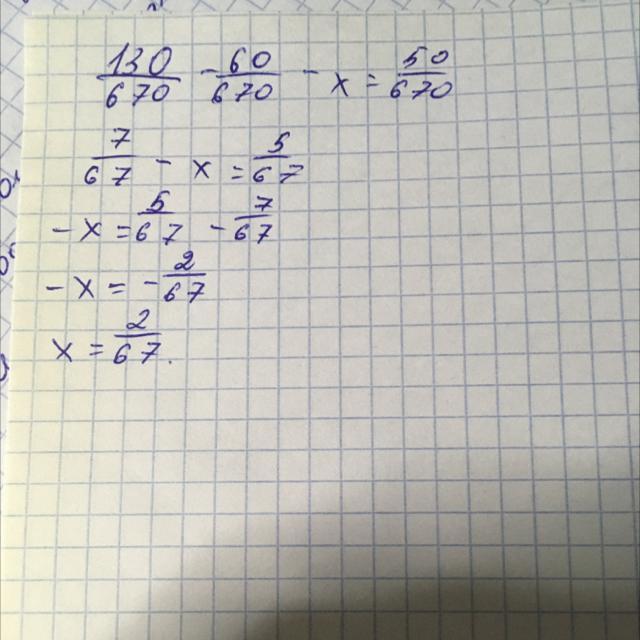 130/670 - 60/670 - x = 50/670
7/67 - x = 5/67
- x = 5/67 - 7/67
- x = - 2/67
x = 2/67.